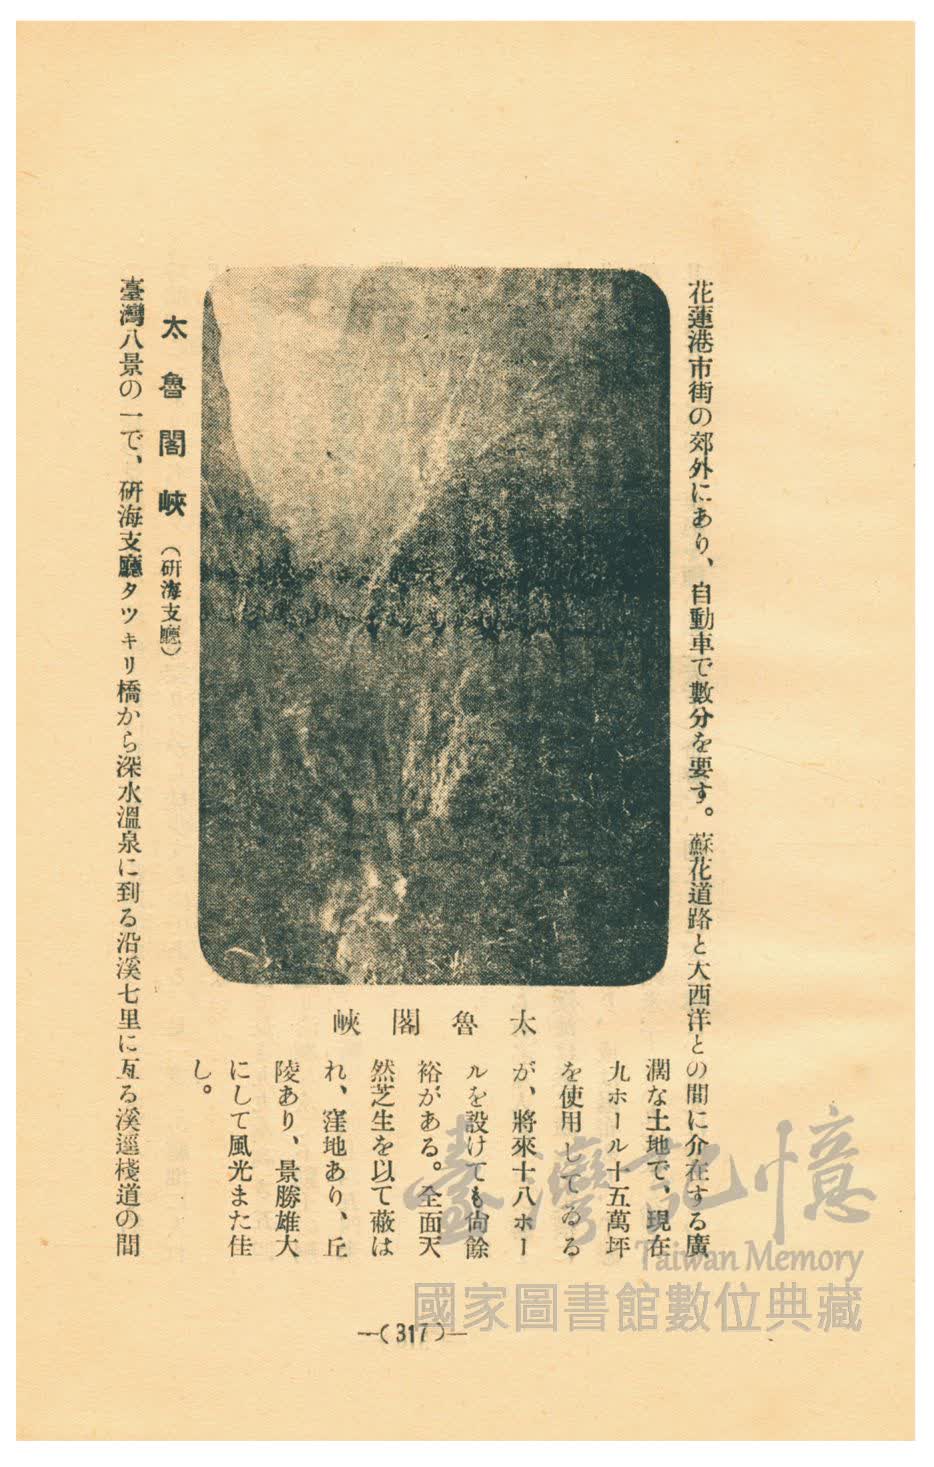 花蓮港市街の郊外にあり、自動車で數分を要す。蘇花道路と大西洋との間に介在する廣
濶な土地で、現在
九ホール十五萬坪
を使用してゐる
が、將來十八ホー
ルを設けても尙餘
裕がある。全面天
然芝生を以て蔽は
れ、窪地あり、丘
陵あり、景勝雄大
にして風光また佳
し。
太魯閣峽
太魯閣峽（硏海支廳）
臺灣八景の一で、硏海支廳タツキリ橋から深水溫泉に到る沿溪七里に亙る溪逕棧道の間
—（317）—
臺灣記憶
Taiwan Memory
國家圖書館數位典藏